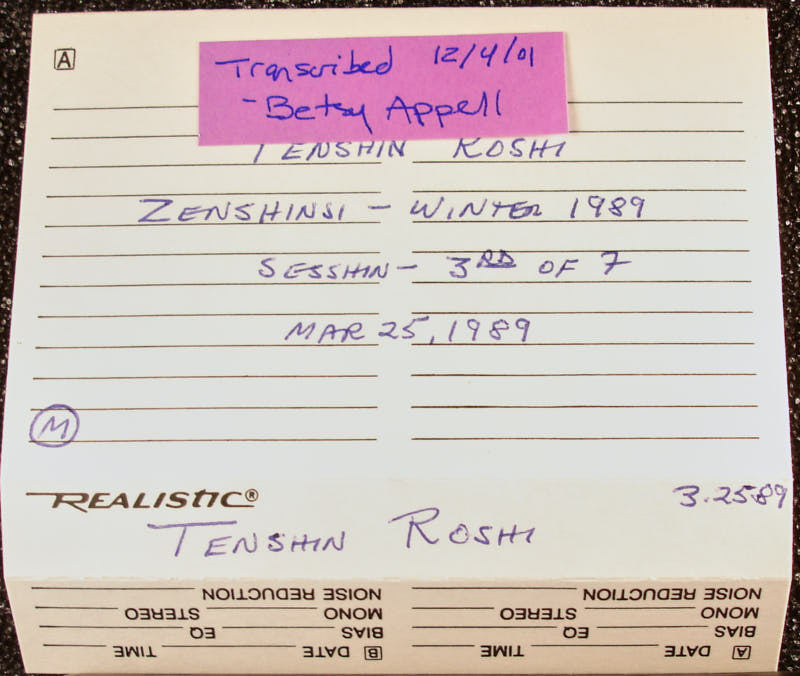 A
Transcribed 12/4/01
- Betsy Appell
TENSHIN ROSHI
ZENSHINSI - WINTER 1989
SESSHIN - 3RD OF 7
MAR 25, 1989
M
REALISTIC®
3.25.89
TENSHIN ROSHI
A DATE TIME
BIAS EQ
MONO STEREO
NOISE REDUCTION
B DATE TIME
BIAS EQ
MONO STEREO
NOISE REDUCTION